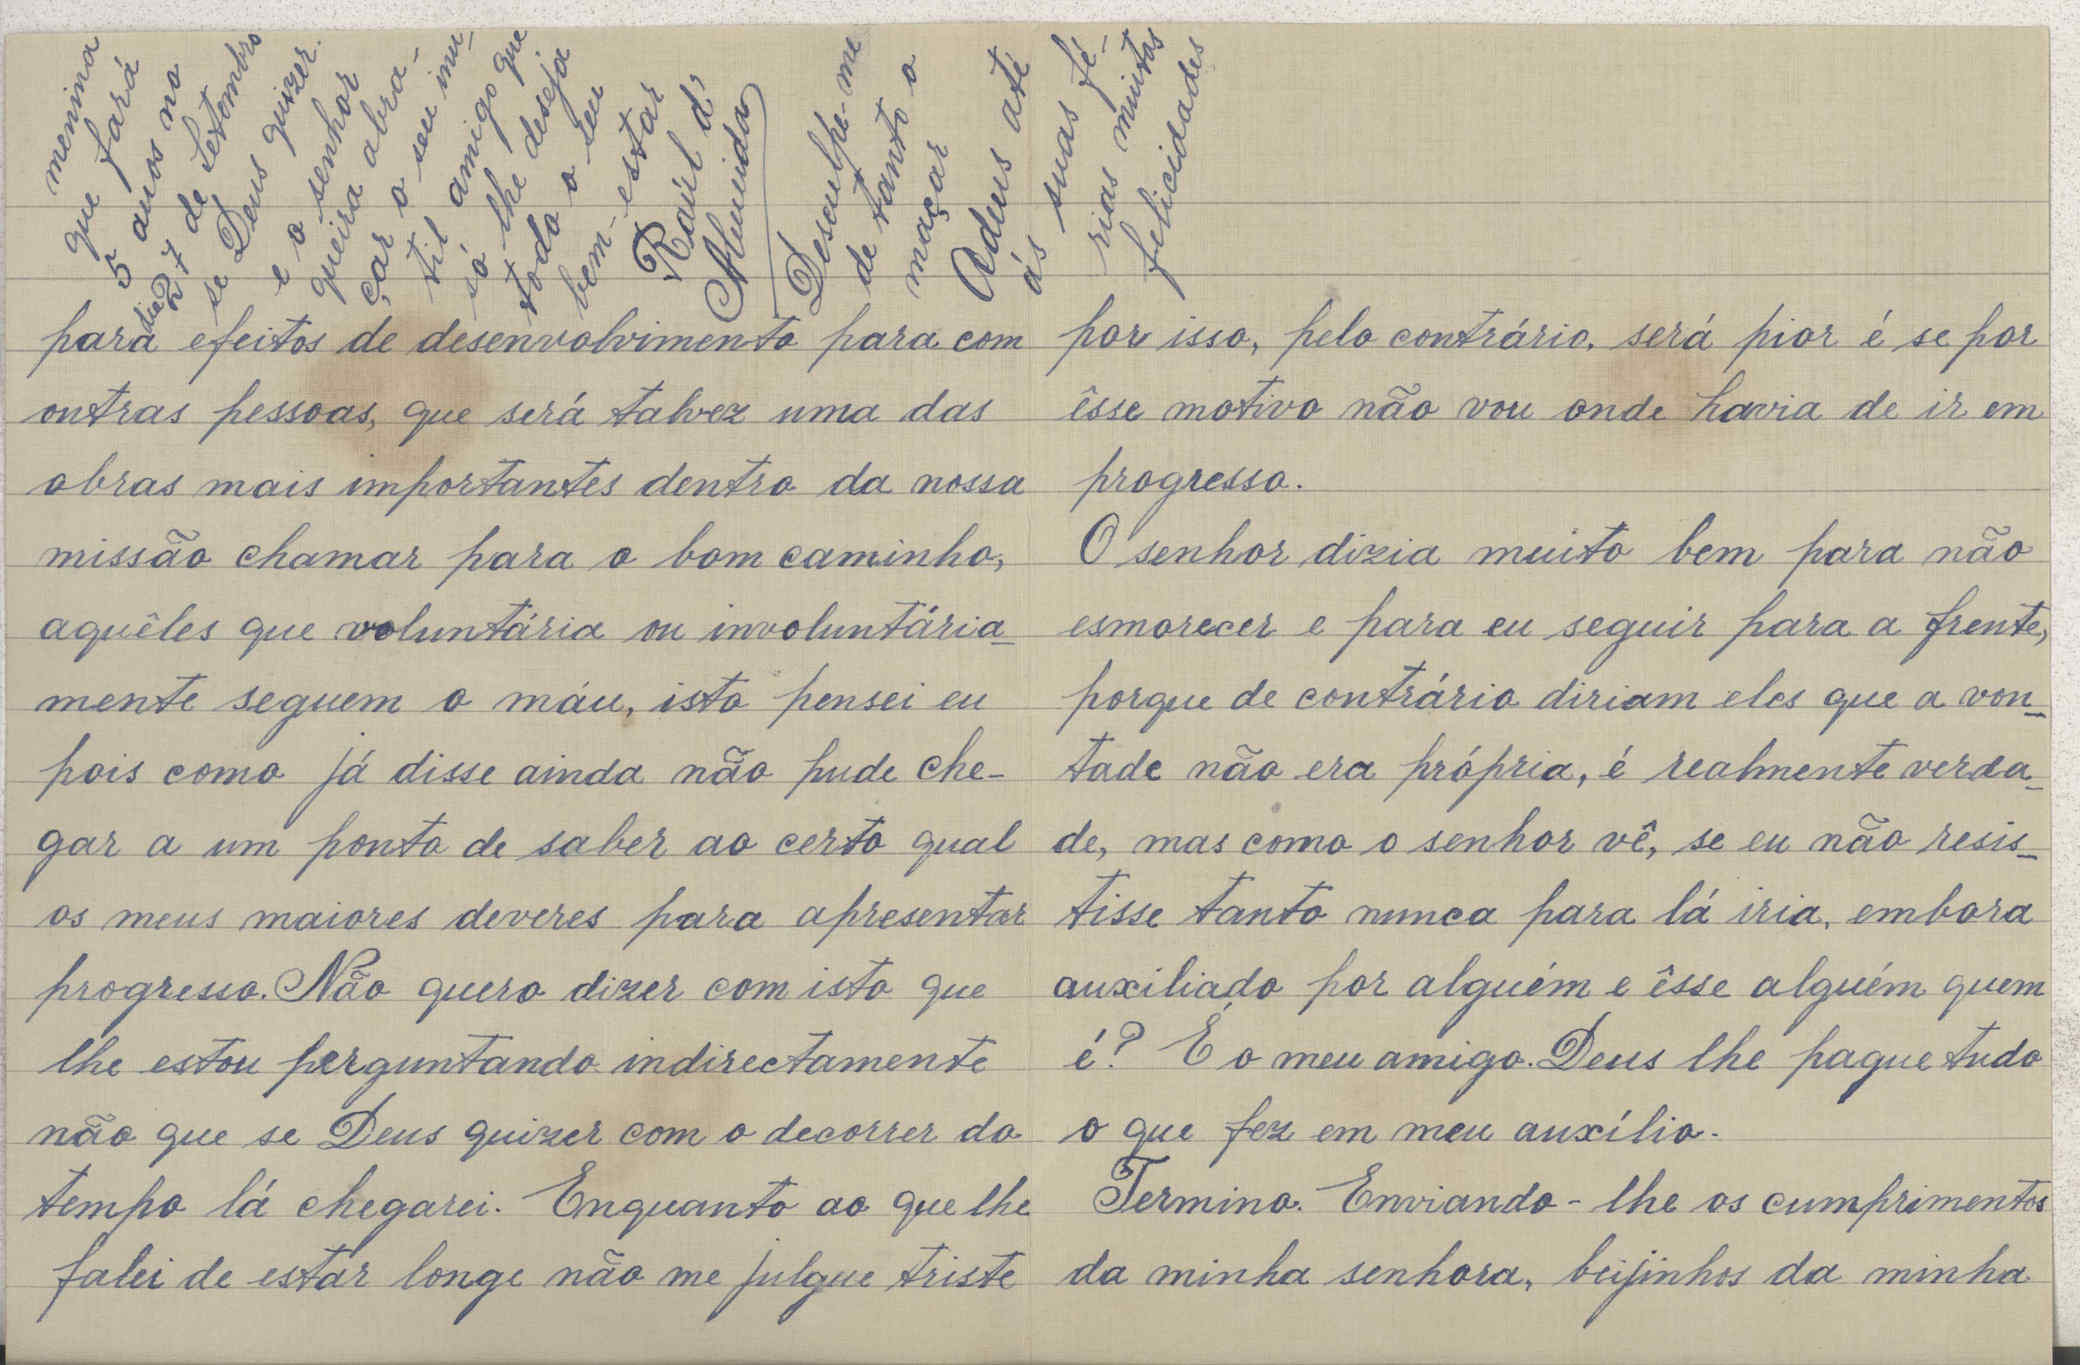 para efeitos de desenvolvimento para com
outras pessoas, que será talvez uma das
obras mais importantes dentro da nossa
missão chamar para o bom caminho,
aquêles que voluntária ou involuntária-
mente seguem o máu, isto pensei eu
pois como já disse ainda não pude che-
gar a um ponto de saber ao certo qual
os meus maiores deveres para apresentar
progresso. Não quero dizer com isto que
lhe estou perguntando indirectamente
não que se Deus quizer com o decorrer do
tempo lá chegarei. Enquanto ao que lhe
falei de estar longe não me julgue triste
por isso, pelo contrário, será pior é se por
êsse motivo não vou onde havia de ir em
progresso.
O senhor dizia muito bem para não
esmorecer e para eu seguir para a frente,
porque de contrário diriam eles que a von-
tade não era própria, é realmente verda-
de, mas como o senhor vê, se eu não resis-
tisse tanto nunca para lá iria, embora
auxiliado por alguém e êsse alguém quem
é? É o meu amigo. Deus lhe pague tudo
o que fez em meu auxílio.
Termino. Enviando-lhe os cumprimentos
da minha senhora, beijinhos da minha
menina
que fará
5 anos no
dia 27 de Setembro
se Deus quizer.
e o senhor
queira abra-
çar o seu inu-
til amigo que
só lhe deseja
todo o seu
bem-estar
Raúl d'
Almeida
Desculpe-me
de tanto o
maçar
Adeus até
ás suas fé-
rias muitas
felicidades